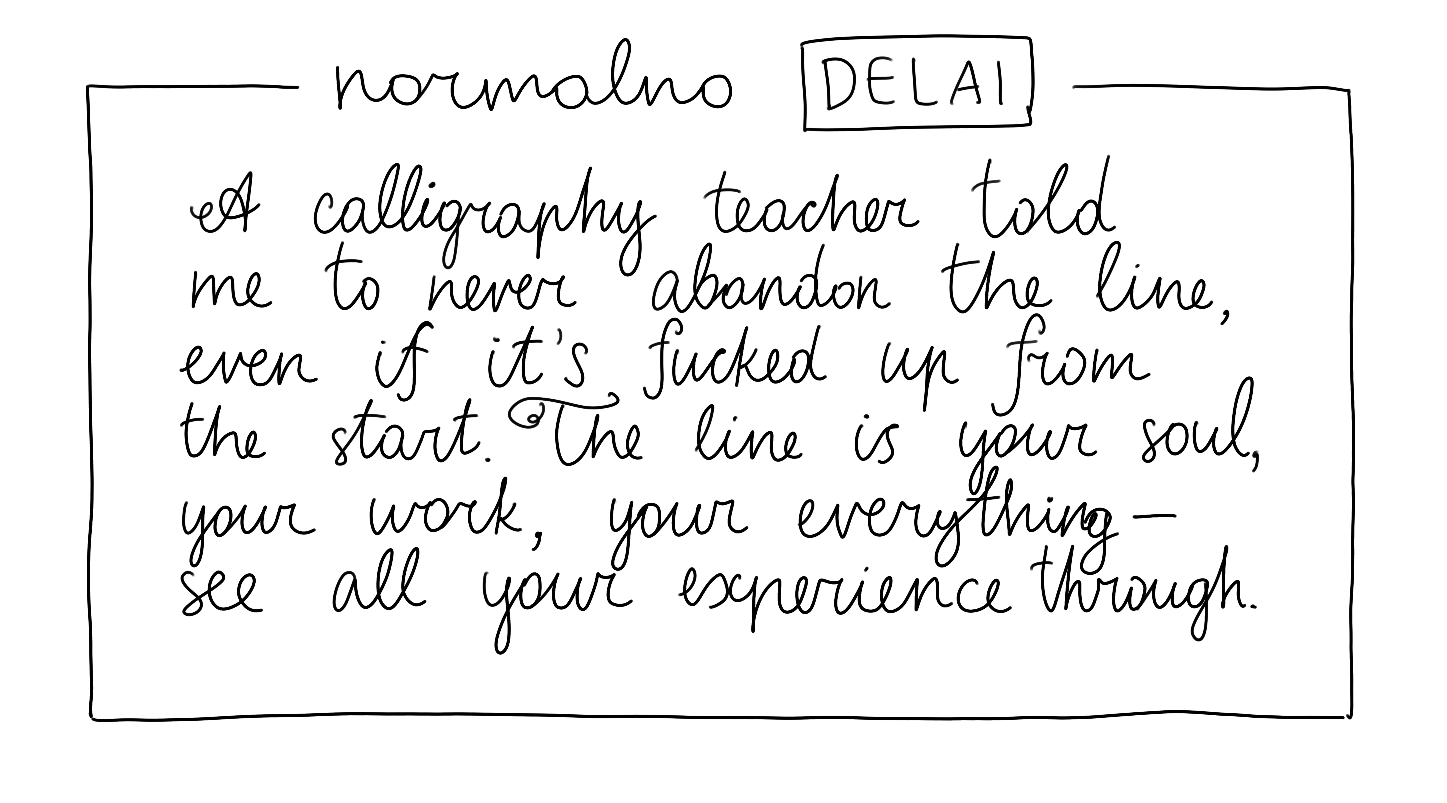 normalno DELAI
A calligraphy teacher told
me to never abandon the line,
even if it's fucked up from
the start. The line is your soul,
your work, your everything—
see all your experience through.